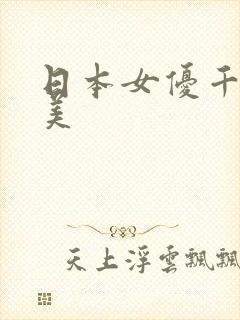 日本女優千
美
天上浮雲飄飄